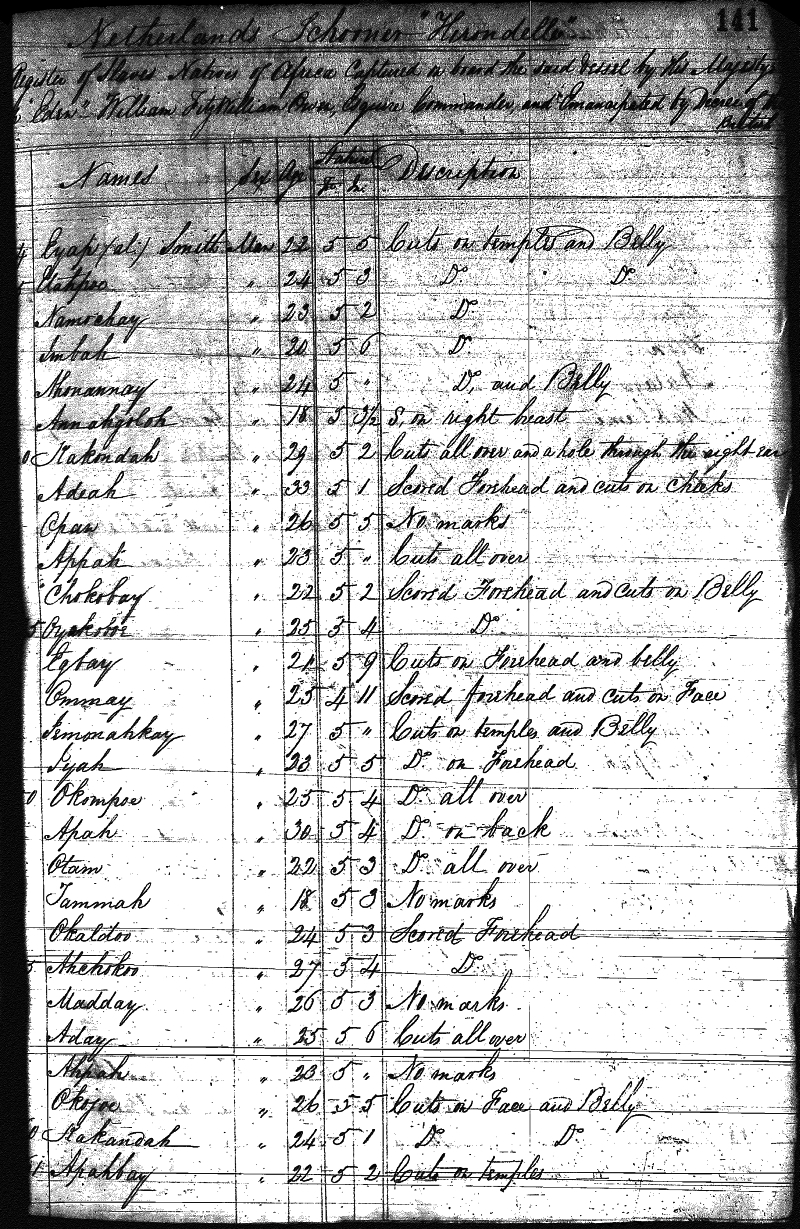 141
Netherlands Schooner "Hirondelle"
Register of Slaves Natives of Africa Captured on board the said Vessel by His Majesty's
"Eden" William FitzWilliam Owen, Esquire Commander, and Emancipated by Decree of the
British
Names Sex Age Stature Description
ft In.
4 Eyap (al.) Smith Man 22 5 5 Cuts on temples and Belly
Etahpoo " 24 5 3 Do. Do.
Namochay " 23 5 2 Do.
Imbah " 20 5 6 Do.
Ahonannay " 24 5 " Do, and Belly
Annahgoloh " 18 5 3½ S, on right breast
0 Kakondah " 29 5 2 Cuts all over and a hole through the right ear
Adeah " 33 5 1 Scored Forehead and cuts on cheeks
Opan " 26 5 5 No marks
Appah " 23 5 " Cuts all over
Chokobay " 22 5 2 Scored Forehead and cuts on Belly
5 Oyakoboe " 25 5 4 Do.
Egbary " 21 5 9 Cuts on Forehead and belly
Ommay " 25 4 11 Scored forehead and cuts on Face
Femonahkay " 27 5 " Cuts on temples and Belly
Iyah " 23 5 5 Do. on Forehead
0 Okompoe " 25 5 4 Do. all over
Apah " 30 5 4 Do. on back
Otam " 22 5 3 Do. all over
Tammah " 18 5 3 No marks
Okaldoo " 24 5 3 Scored Forehead
5 Ahchokoo " 27 5 4 Do.
Madday " 26 5 3 No marks
Aday " 25 5 6 Cuts all over
Ahpah " 23 5 " No marks
Okojoe " 26 5 5 Cuts on Face and Belly
0 Kakandah " 24 5 1 Do. Do.
1 Apahbay " 22 5 2 Cuts on temples